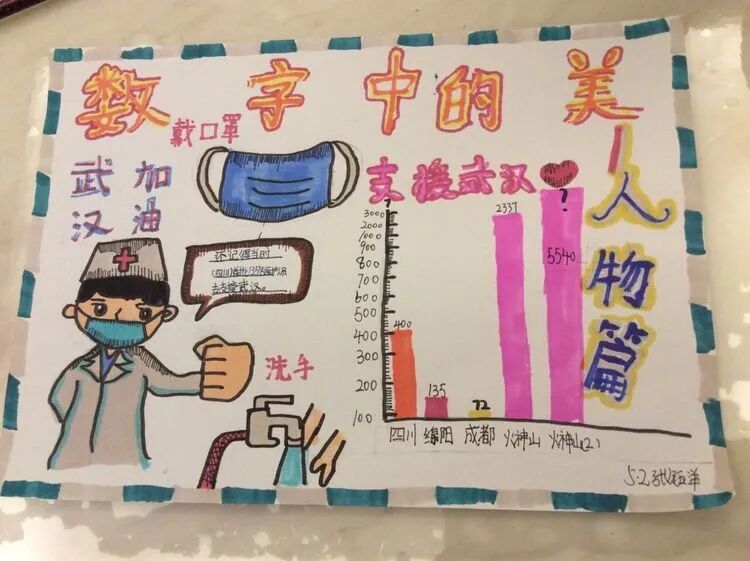 数字中的美
人物篇
戴口罩
武汉
加油
支援武汉
还记得当时
去支援武汉。
洗手
?
3000
2000
1000
900
800
700
600
500
400
300
200
100
400
135
72
2337
?
5540
四川 绵阳 成都 火神山 火神山(2)
5.2